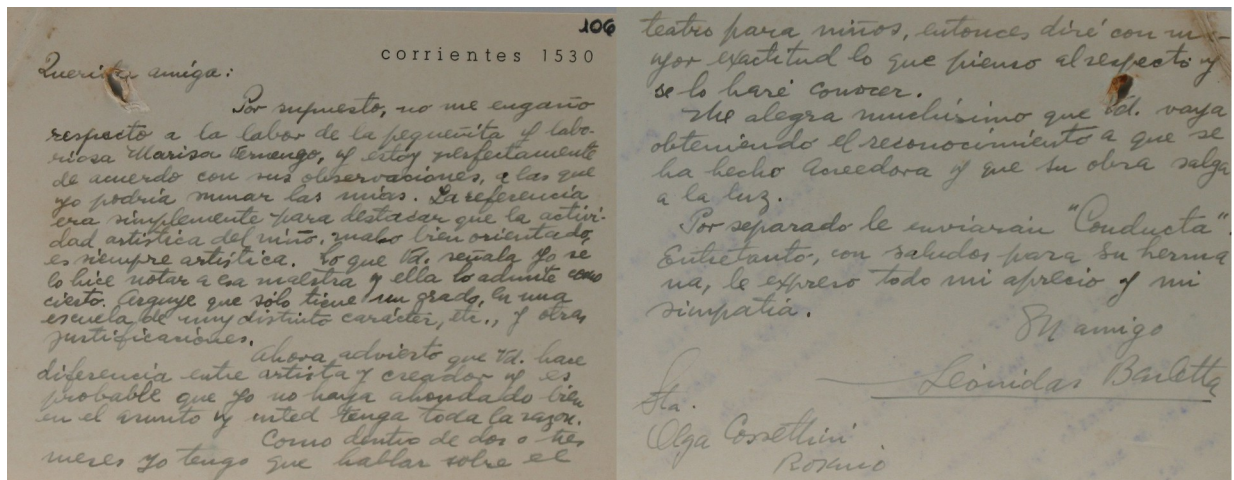 106
corrientes 1530
Querida amiga:
Por supuesto, no me engaño
respecto a la labor de la pequeñita y labo-
riosa Marisa Vernengo, y estoy perfectamente
de acuerdo con sus observaciones, a las que
yo podría sumar las mías. La referencia
era simplemente para destacar que la activi-
dad artística del niño, cuando bien orientado,
es siempre artística. Lo que Vd. señala yo se
lo hice notar a esa maestra y ella lo admite como
cierto. Arguye que sólo tiene un grado, en una
escuela de muy distinto carácter, etc., y otras
justificaciones.
Ahora advierto que Vd. hace
diferencia entre artista y creador y es
probable que yo no haya ahondado bien
en el asunto y usted tenga toda la razón.
Como dentro de dos o tres
meses yo tengo que hablar sobre el
teatro para niños, entonces diré con ma-
yor exactitud lo que pienso al respecto y
se lo haré conocer.
Me alegra muchísimo que Vd. vaya
obteniendo el reconocimiento a que se
ha hecho acreedora y que su obra salga
a la luz.
Por separado le enviarán "Conducta".
Entretanto, con saludos para su herma
na, le expreso todo mi aprecio y mi
simpatía.
Su amigo
Leónidas Barletta
Sta.
Olga Cossettini
Rosario